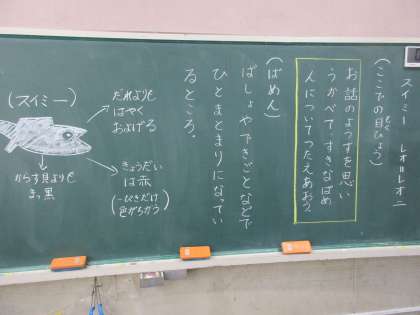 スイミー　レオ=レオニ
(ここでの目ひょう)
お話のようすを思い
うかべて、すきなばめ
んについてつたえあおう。
(ばめん)
ばしょやできごとなどで
ひとまとまりになってい
るところ。
(スイミー)
だれよりも
はやく
およげる
きょうだい
は赤
(一ぴきだけ
色がちがう)
からす貝よりも
まっ黒